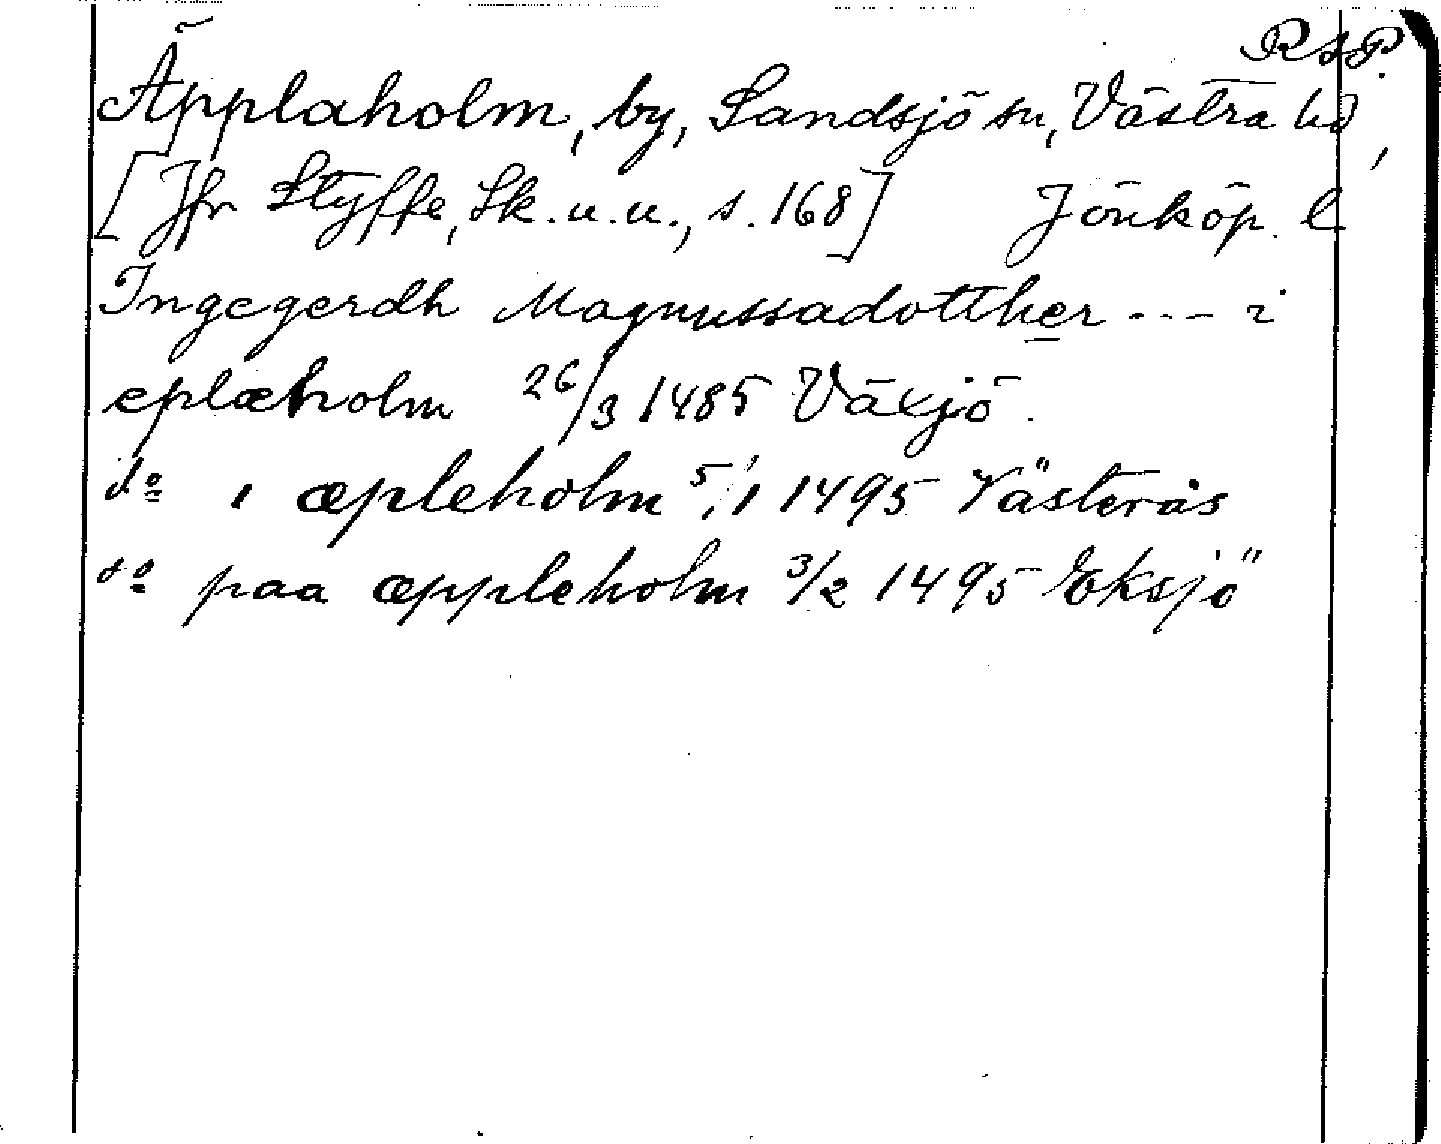 RSP.
Äpplaholm, by, Sandsjö sn, Västra hd,
[Jfr Styffe, Sk. u. u., s. 168] Jönköp. l
Ingegerdh Magnussadotther --- i
eplæholm 26/3 1485 Växjö.
do i æpleholm 5/1 1495 Västerås
do paa æppleholm 3/2 1495 Eksjö